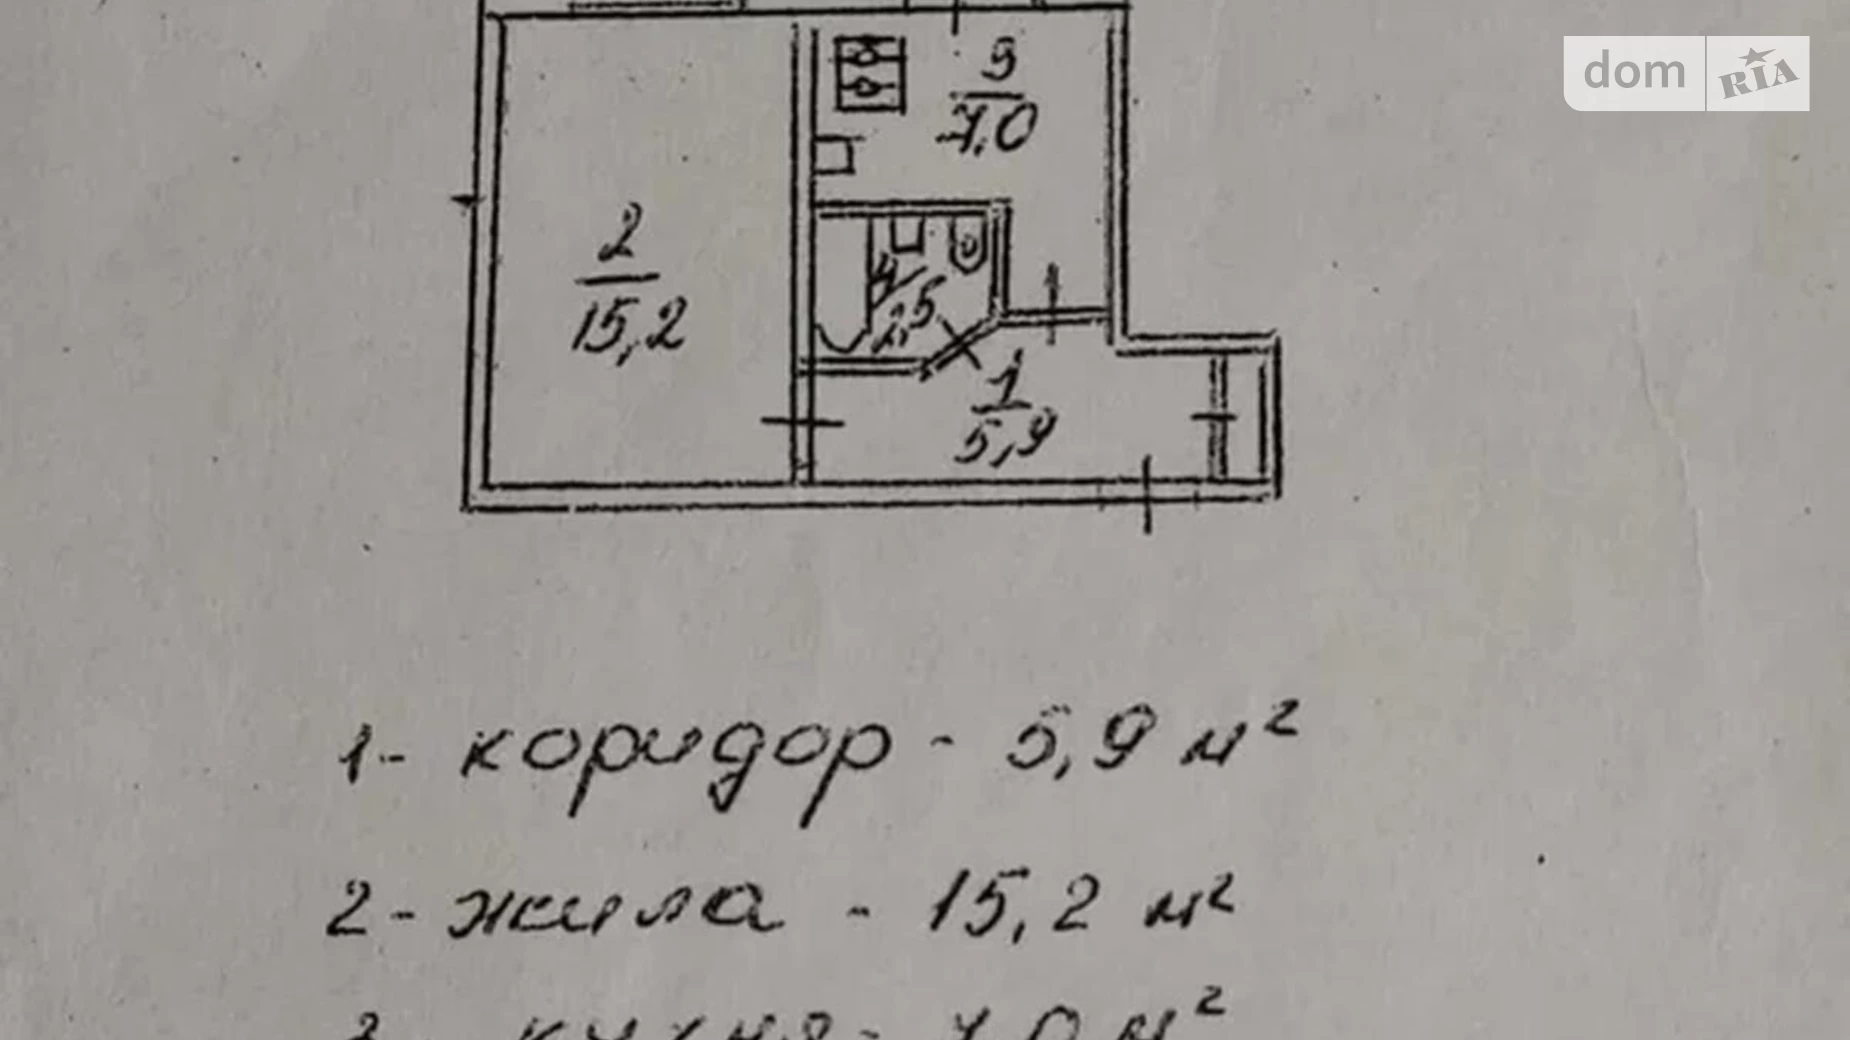 dom RIA
3
7,0
2
15,2
4
2,5
1
5,9
1- коридор - 5,9 м²
2- жила - 15,2 м²
3 - кухня - 7,0 м²